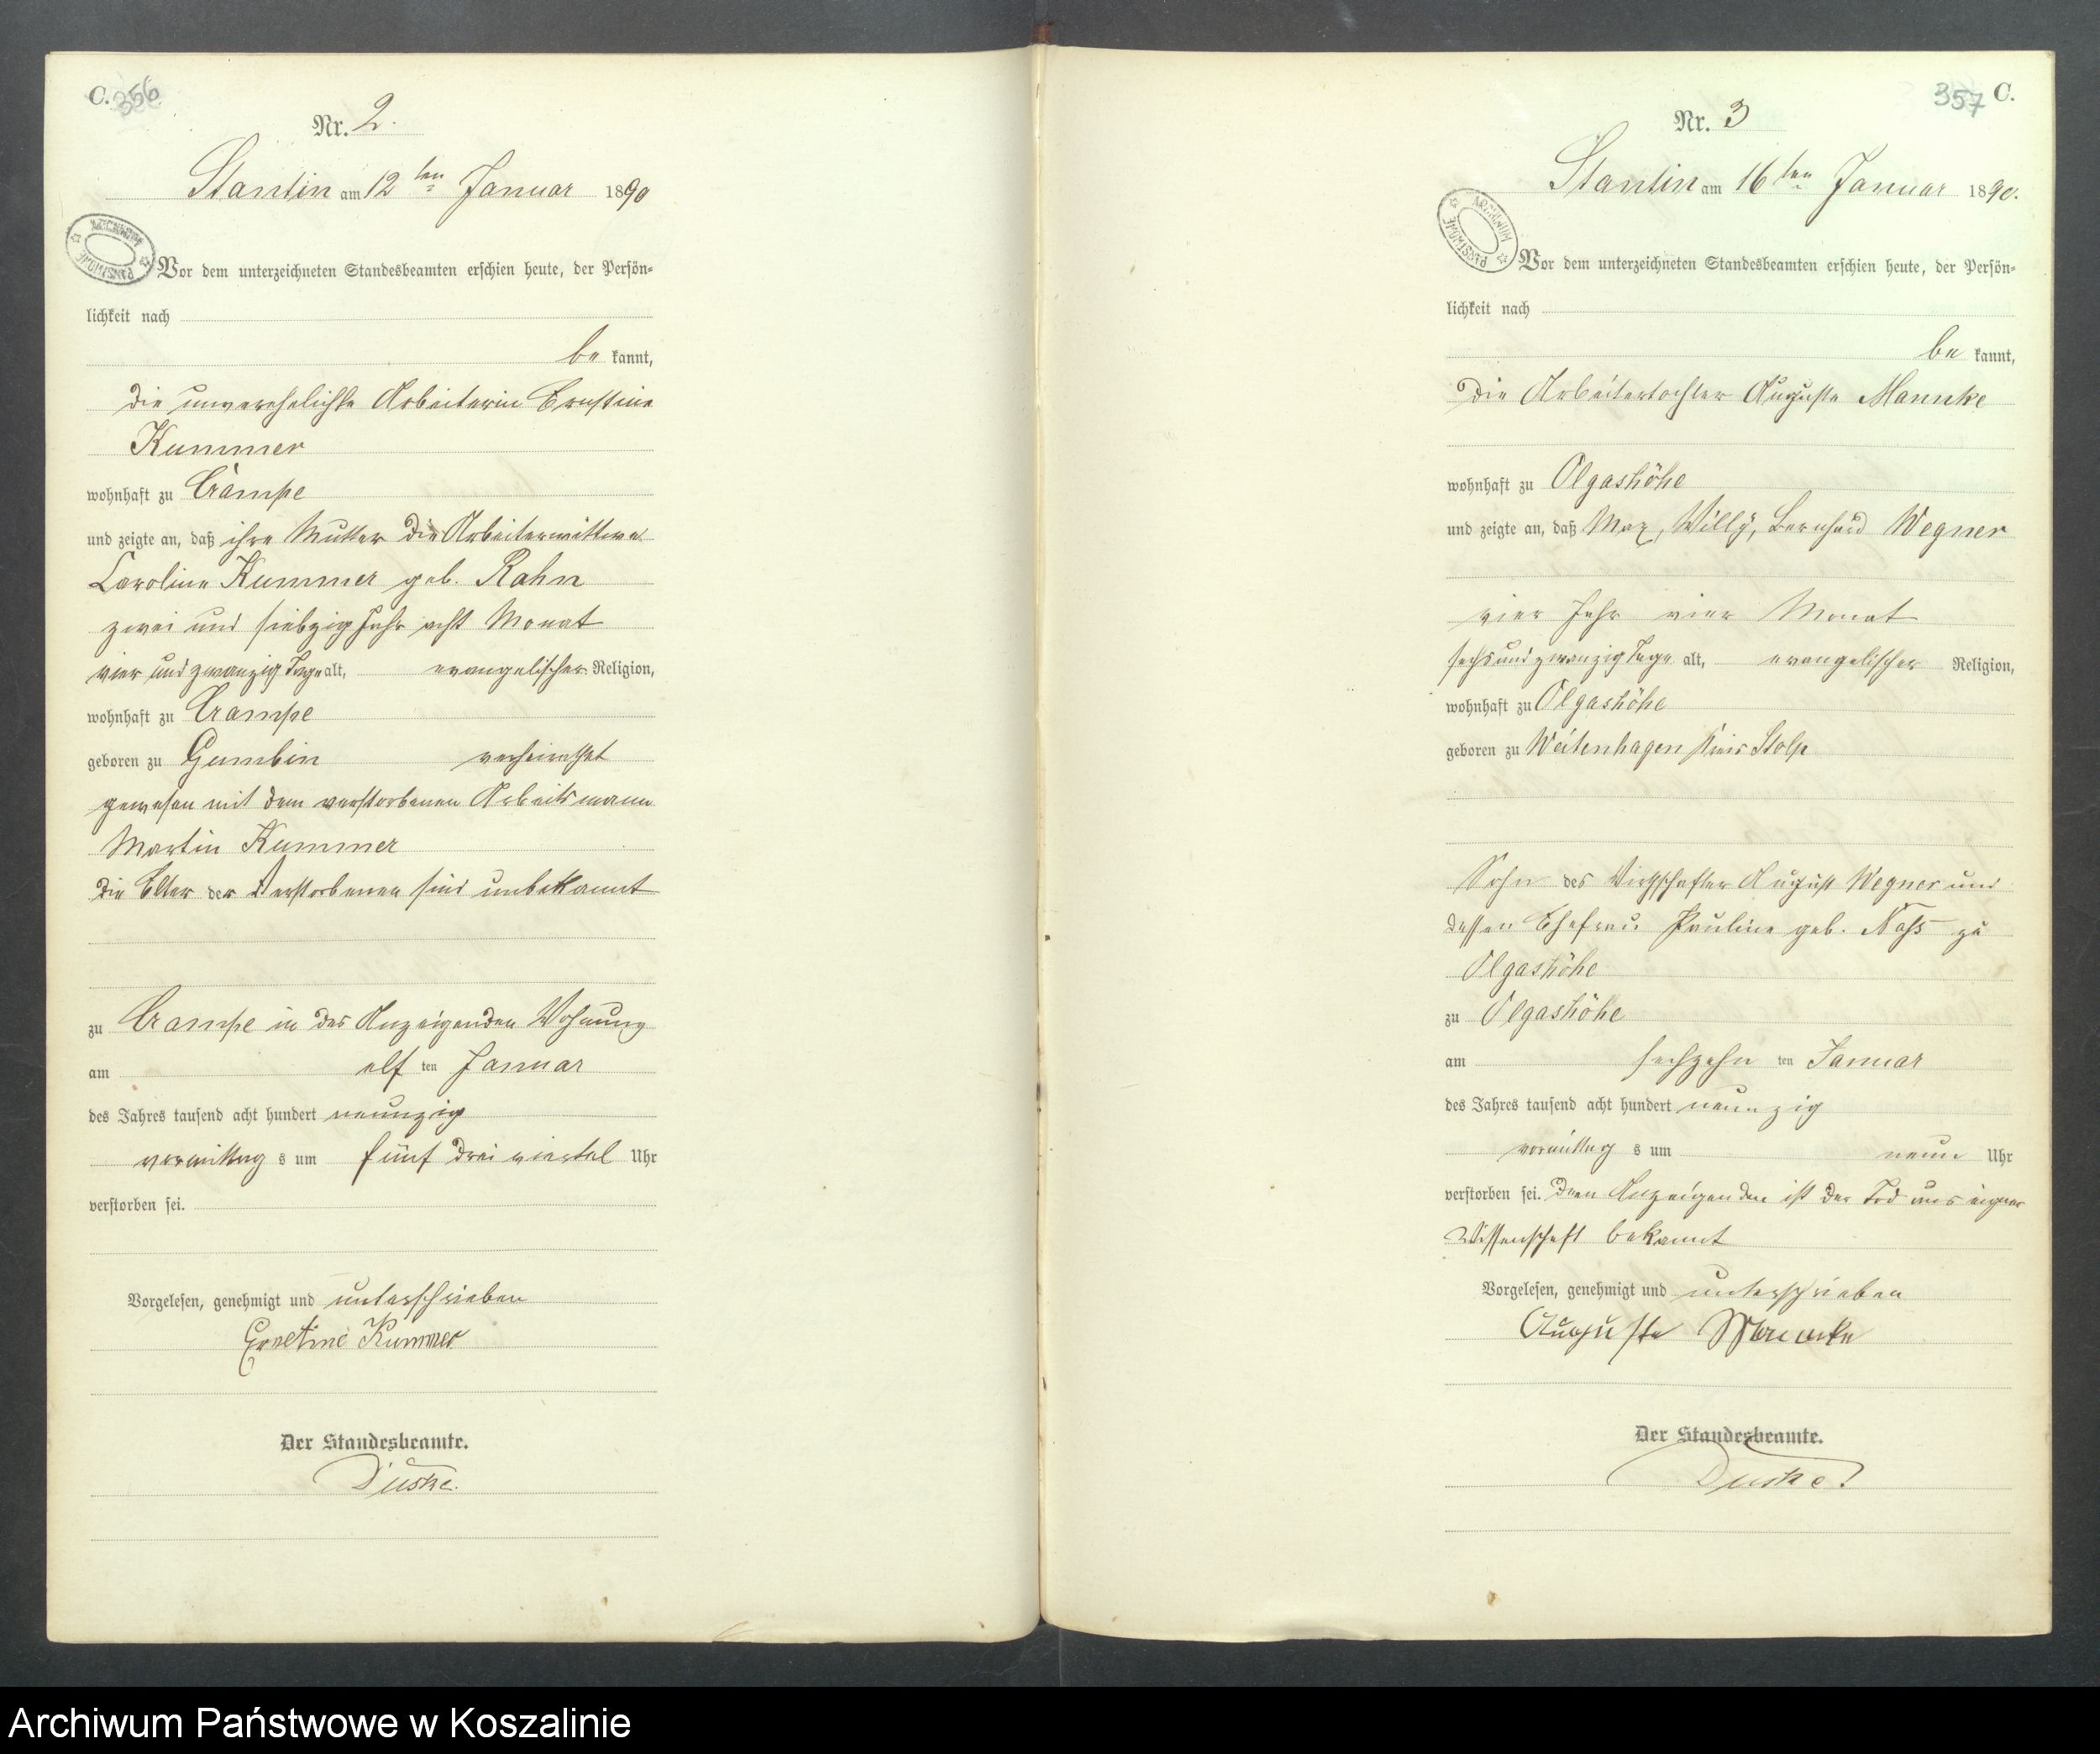 C. 356
Nr. 2.
Stantin am 12ten Januar 1890
ARCHIWUM PAŃSTWOWE
Vor dem unterzeichneten Standesbeamten erschien heute, der Persön-
lichkeit nach
be kannt,
die unverehelichte Arbeiterin Ernstine
Kummer
wohnhaft zu Crampe
und zeigte an, daß ihre Mutter die Arbeiterwittwe
Caroline Kummer geb. Rahn
zwei und siebzig Jahr acht Monat
vier und zwanzig Tage alt, evangelischer Religion,
wohnhaft zu Crampe
geboren zu Gumbin verheirathet
gewesen mit dem verstorbenen Arbeitsmann
Martin Kummer
die Elter der Verstorbenen sind unbekannt
zu Crampe in der Anzeigenden Wohnung
am elf ten Januar
des Jahres tausend acht hundert neunzig
vormittag s um fünf drei viertel Uhr
verstorben sei.
Vorgelesen, genehmigt und unterschrieben
Ernstine Kummer
Der Standesbeamte.
357 C.
Nr. 3
Stantin am 16ten Januar 1890.
ARCHIWUM PAŃSTWOWE
Vor dem unterzeichneten Standesbeamten erschien heute, der Persön-
lichkeit nach
be kannt,
die Arbeitertochter Auguste Mannke
wohnhaft zu Olgashöhe
und zeigte an, daß Max, Willy, Bernhard Wegner
vier Jahr vier Monat
sechs und zwanzig Tage alt, evangelischer Religion,
wohnhaft zu Olgashöhe
geboren zu Weitenhagen Kreis Stolp
Sohn des Wirthschafter August Wegner und
dessen Ehefrau Pauline geb. zu
Olgashöhe
zu Olgashöhe
am sechzehn ten Januar
des Jahres tausend acht hundert neunzig
vormittag s um neun Uhr
verstorben sei. Der Anzeigenden ist der Tod aus eigner
Wissenschaft bekannt
Vorgelesen, genehmigt und unterschrieben
Auguste Mannke
Der Standesbeamte.
Archiwum Państwowe w Koszalinie